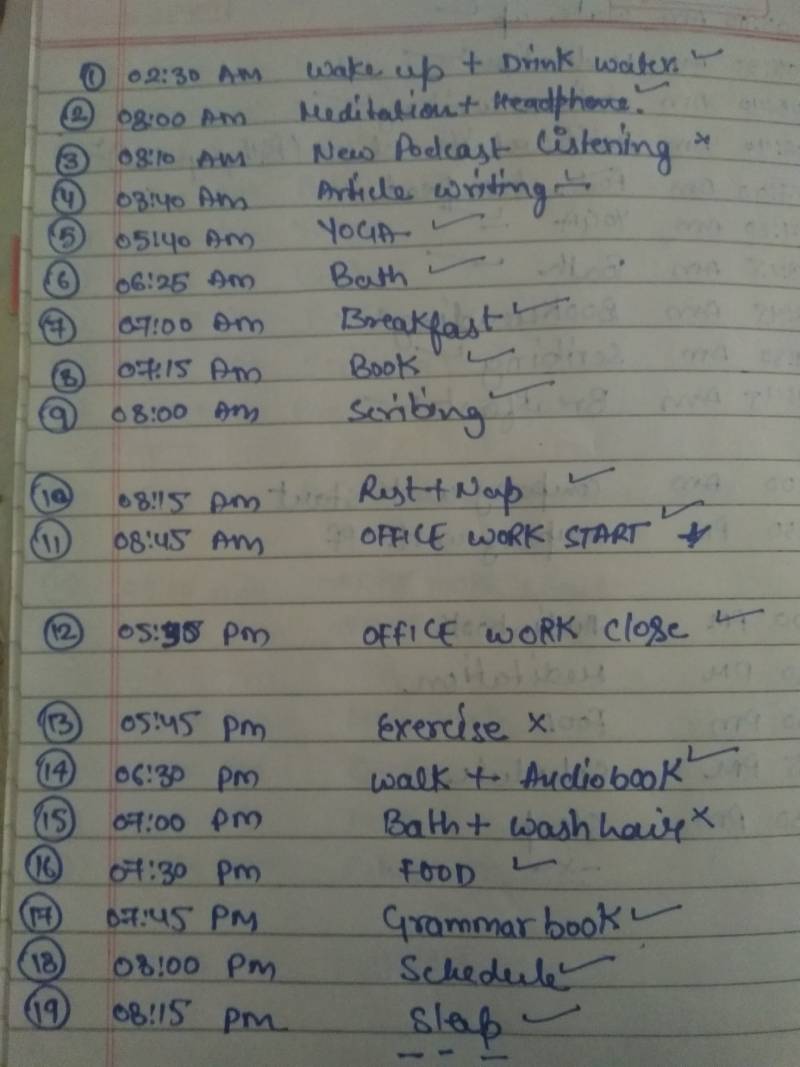 ① 02:30 AM Wake up + Drink water. ✓
② 03:00 Am Meditation + Headphone. ✓
③ 03:10 AM New Podcast Listening ×
④ 03:40 Am Article writing ✓
⑤ 05:40 Am YOGA ✓
⑥ 06:25 Am Bath ✓
⑦ 07:00 Am Breakfast ✓
⑧ 07:15 Am BOOK ✓
⑨ 08:00 Am Scribing ✓
⑩ 08:15 Am Rest + Nap ✓
⑪ 08:45 Am OFFICE WORK START ✓
⑫ pm OFFICE WORK Close ✓
⑬ 05:45 pm Exercise ×
⑭ 06:30 pm walk + Audiobook ✓
⑮ 07:00 pm Bath + wash hair ×
⑯ 07:30 pm FOOD ✓
⑰ 07:45 PM Grammar book ✓
⑱ 08:00 pm Schedule ✓
⑲ 08:15 pm Sleap ✓